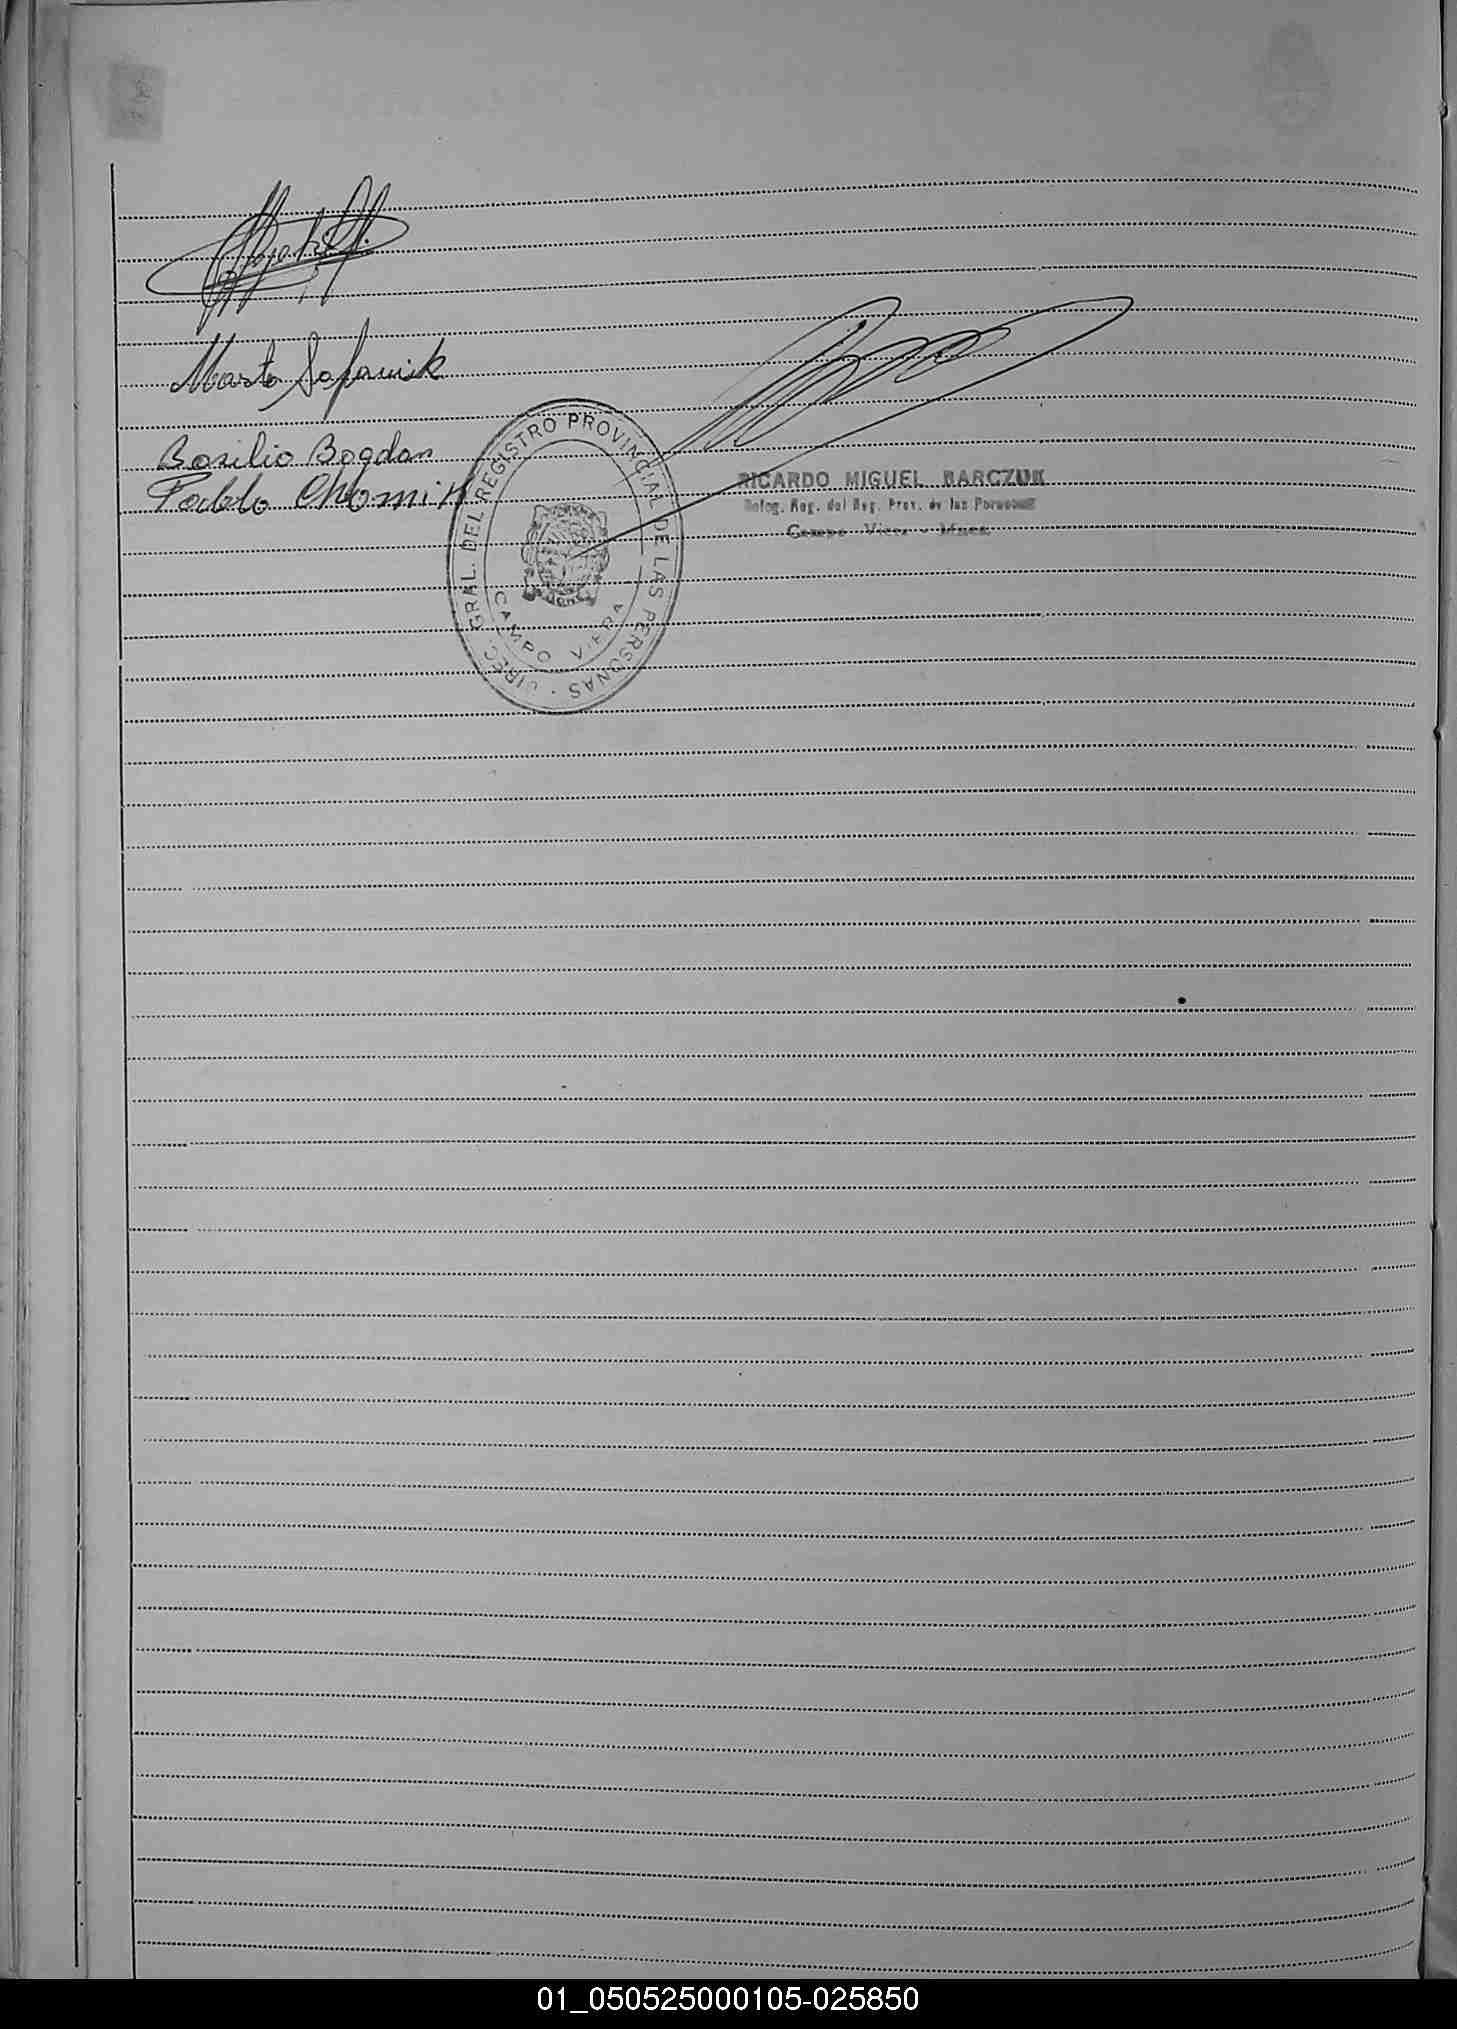 Marta Safaniuk
Basilio Bogdan
Pablo Chlomik
DIREC. GRAL. DEL REGISTRO PROVINCIAL DE LAS PERSONAS
CAMPO VIERA
RICARDO MIGUEL BARCZUK
Deleg. Reg. del Reg. Prov. de las Personas
Campo Viera - Mnes.
01_050525000105-025850